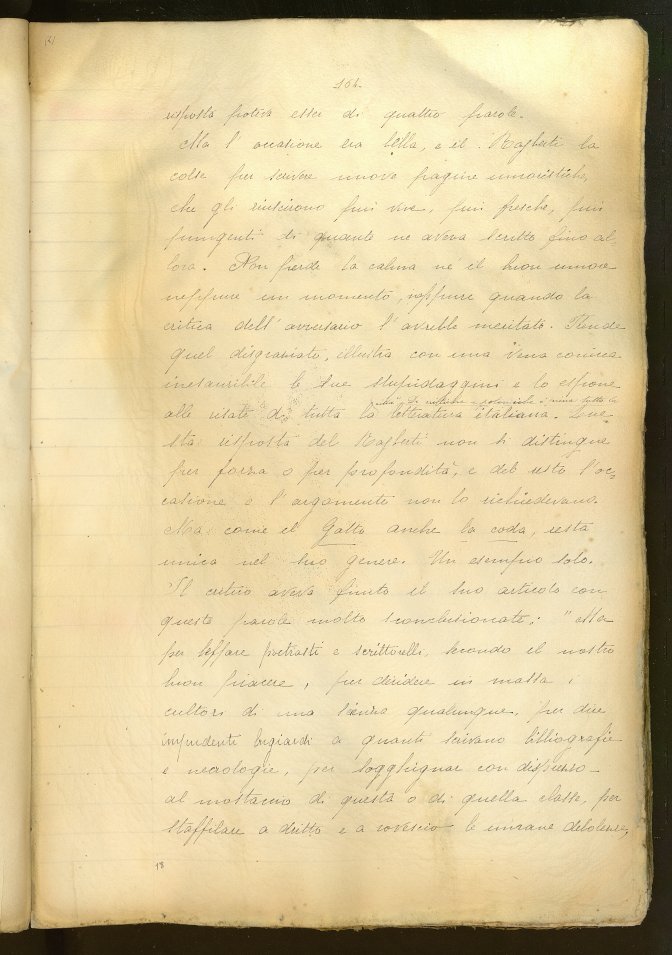 154.
risposta poteva esser di quattro parole.
Ma l'occasione era bella, e il Raiberti la
colse per scrivere nuove pagine umoristiche,
che gli riuscirono più vive, più fresche, più
pungenti di quante ne aveva scritto fino al
lora. Non perde la calma né il buon umore
neppure un momento, neppure quando la
critica dell'avversario l'avrebbe meritato. Prende
quel disgraziato, illustra con una vena comica
inesauribile le sue stupidaggini e lo espone
alle risate di tutta la letteratura italiana. Que
sta risposta del Raiberti non si distingue
per forza o per profondità, e del resto l'oc
casione e l'argomento non lo richiedevano.
Ma come il Gatto anche la coda, resta
unica nel suo genere. Un esempio solo.
Il critico aveva finito il suo articolo con
queste parole molto sconclusionate: "Ma
per beffare poetastri e scrittorelli, secondo il nostro
buon piacere, per deridere in massa i
cultori di una scienza qualunque, per dire
impudenti bugiardi a quanti scrivano bibliografie
e necrologie, per sogghignar con disprezzo
al mostaccio di questa o di quella classe, per
staffilare a dritto e a rovescio le umane debolezze,
18